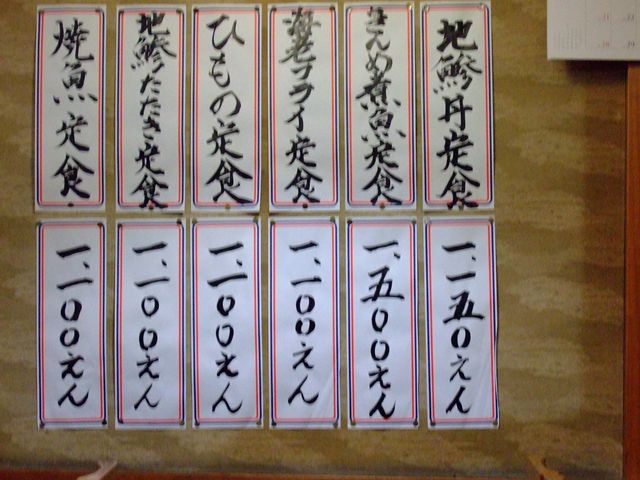 地鯵丼定食
一、一五0えん
きんめ煮魚定食
一、五00えん
海老フライ定食
一、一00えん
ひもの定食
一、一00えん
地鯵たたき定食
一、一00えん
焼魚定食
一、一00えん